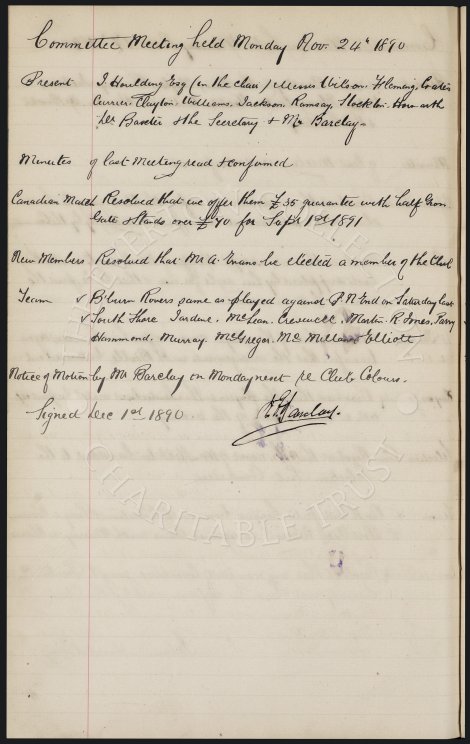 Committee Meeting held Monday Nov. 24th 1890
Present J Houlding Esq (in the chair) Messrs Wilson. Fleming. Coates
Currier. Clayton. Williams. Jackson. Ramsay. Stockton. Howarth
Dr Baxter & the Secretary & Mr Barclay.
Minutes of last Meeting read & confirmed
Canadian Match Resolved that we offer them £35 guarantee with half from
Gate & Stands over £70 for Sept 1st 1891
New Members Resolved that Mr A. Evans be elected a member of the Club
Team v B'burn Rovers same as played against P. N End on Saturday last
v South Shore Jardine. McLean. Cresswell. Martin. R Jones. Parry
Hammond. Murray. McGregor. McMillan Elliott
Notice of Motion by Mr Barclay on Monday next re Club Colours.
Signed Dec 1st 1890. Barclay.
CHARITABLE TRUST